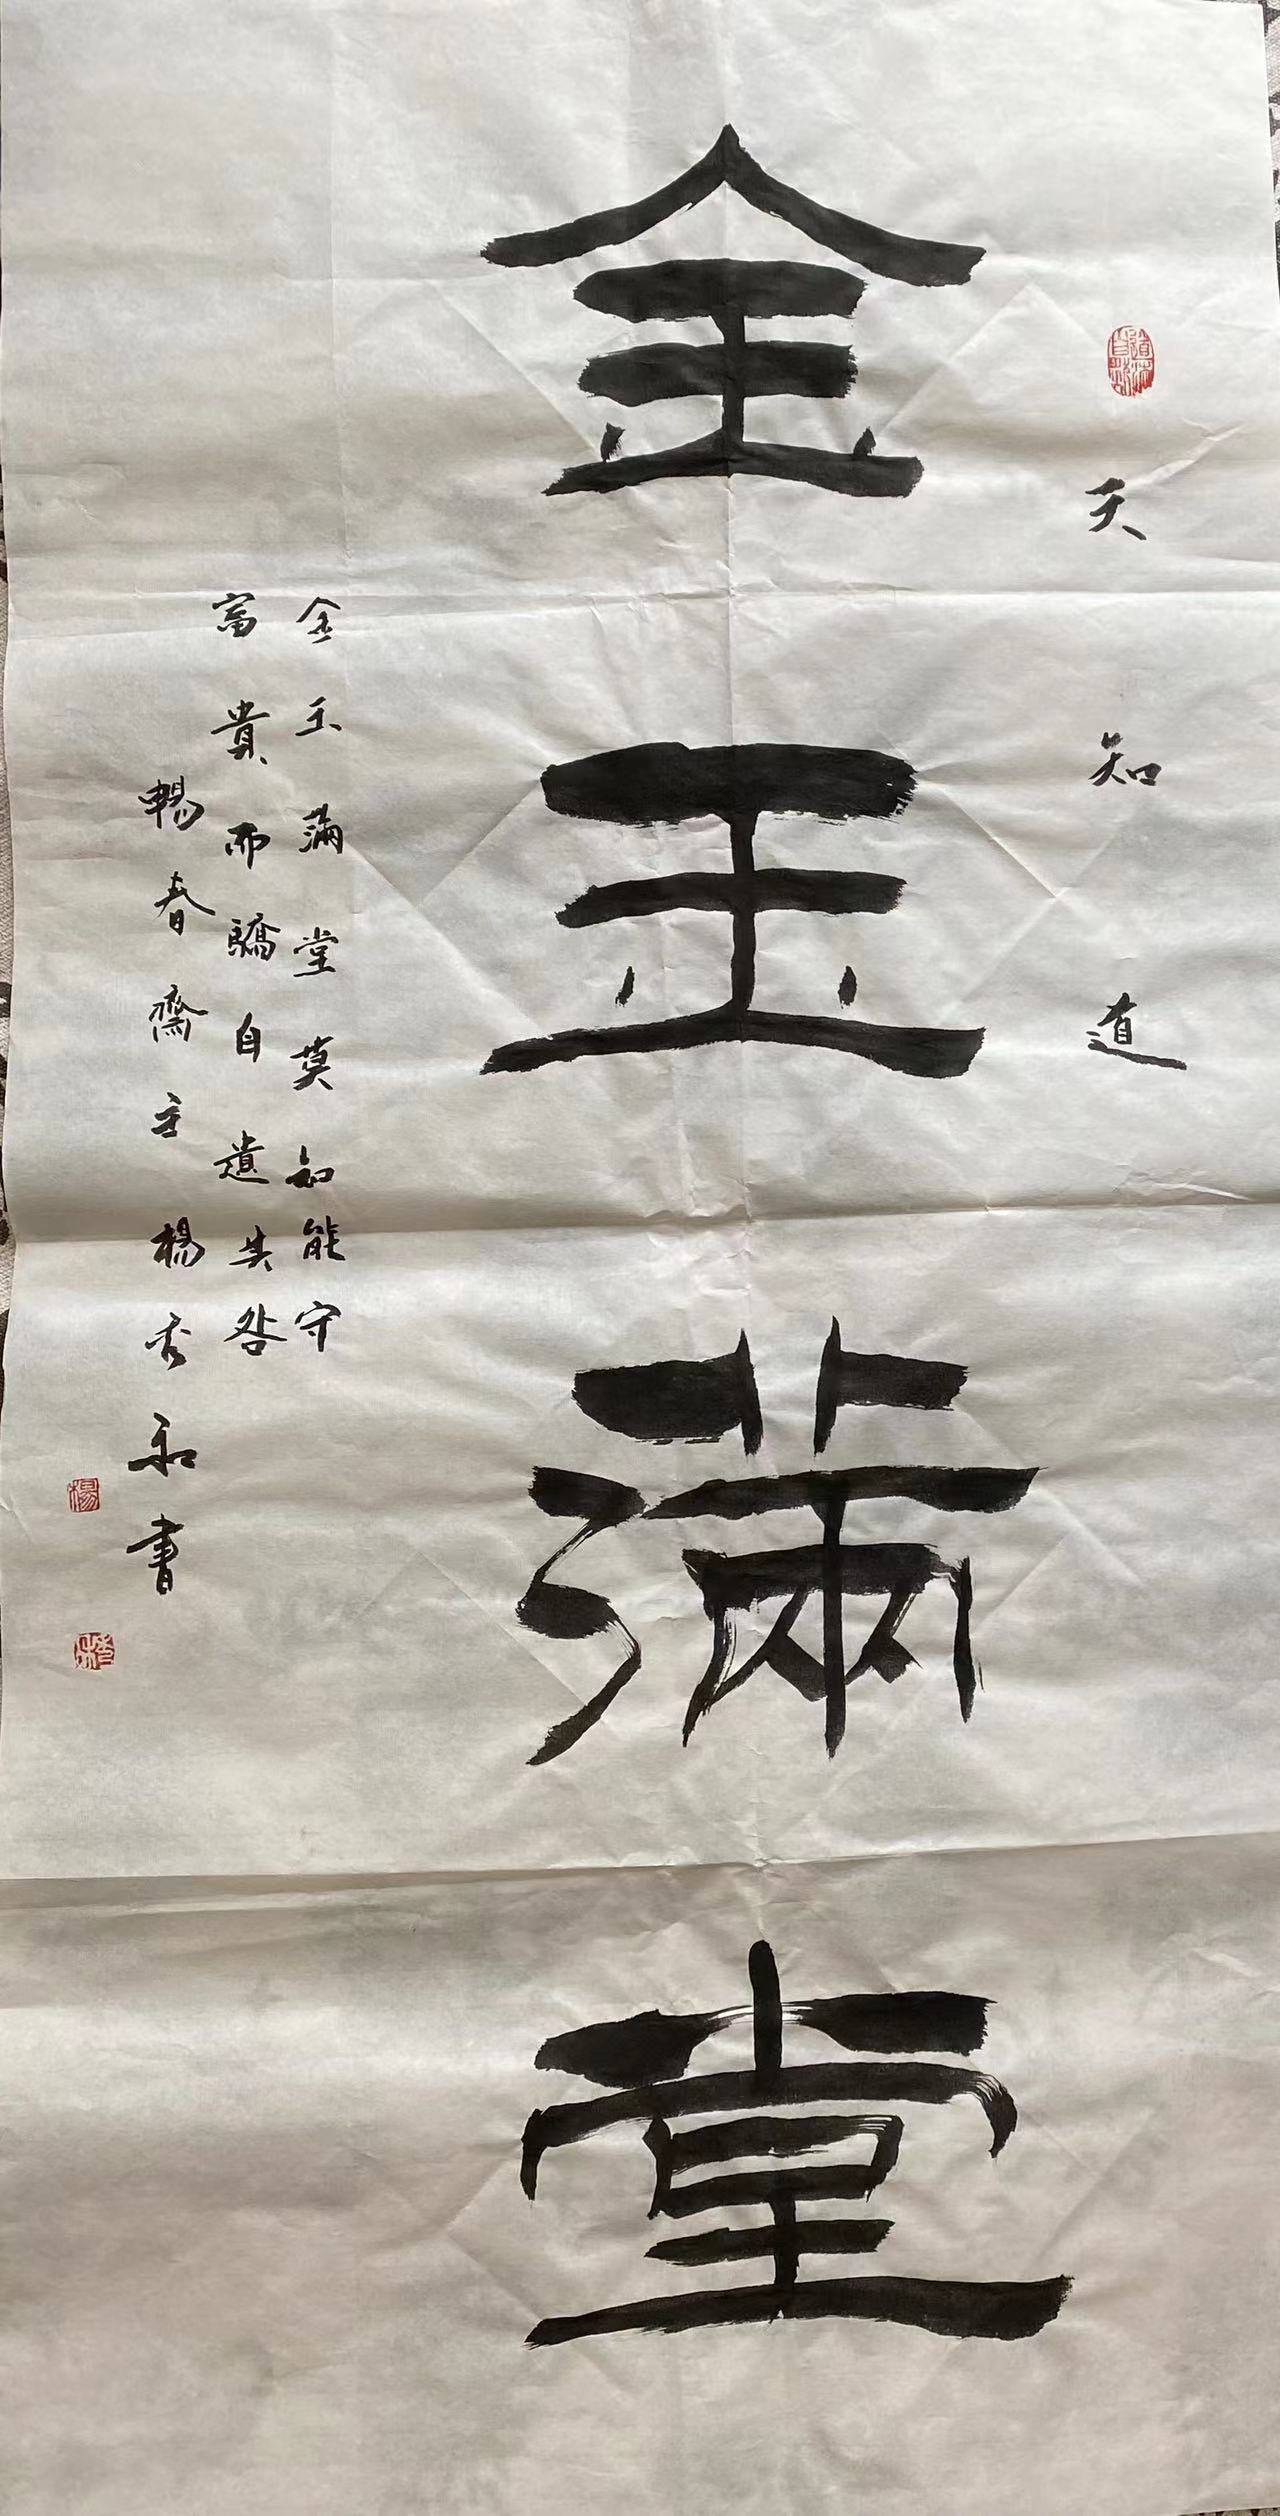 道法自然
天知道
金玉滿堂
金玉滿堂莫知能守
富貴而驕自遺其咎
暢春齋主楊秀和書
楊